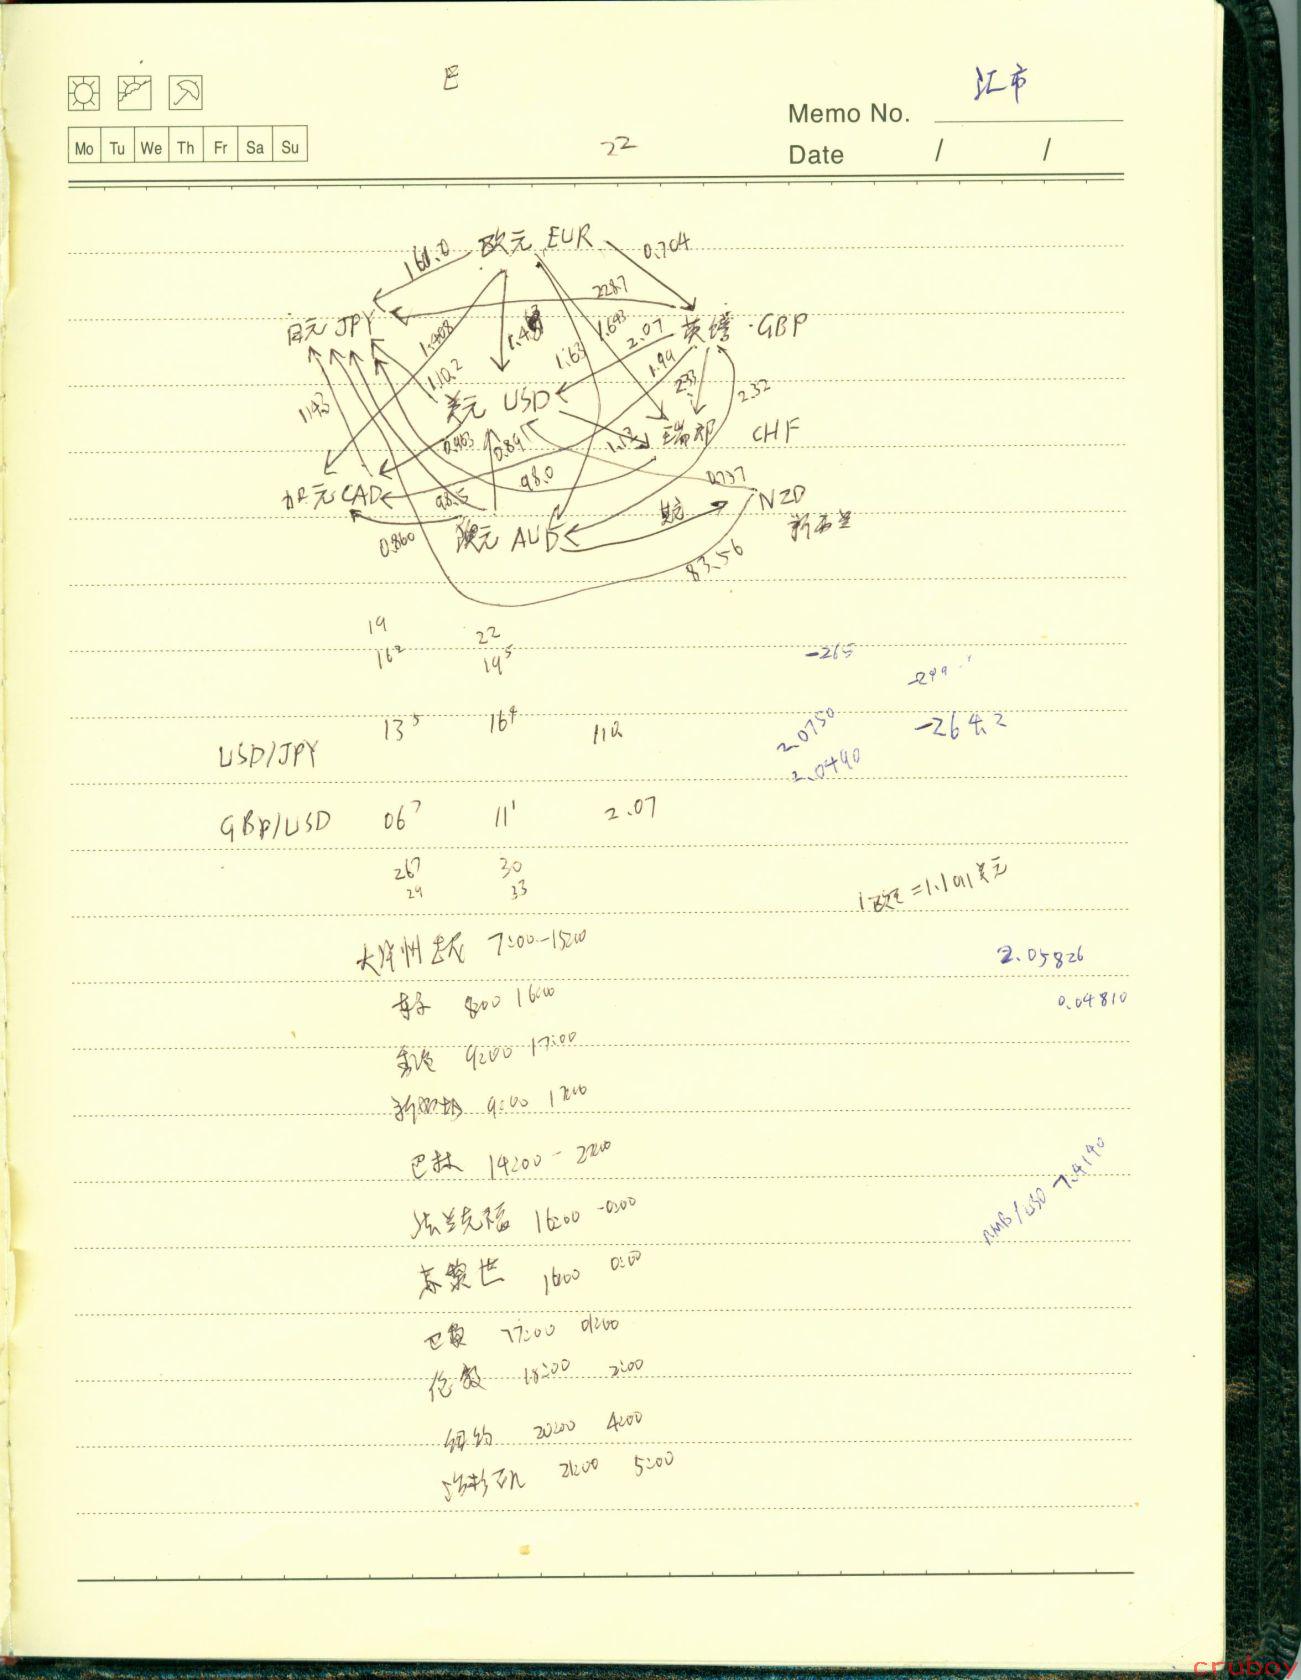 汇市
Memo No.
22
Mo Tu We Th Fr Sa Su
Date / /
欧元 EUR
0.704
161.0
228.7
日元 JPY
1.408
1.693
2.07
英镑 GBP
110.2
1.63
1.99
美元 USD
233
232
143
0.963
0.89
瑞郎 CHF
98.0
0.737
加元 CAD
98.5
NZD
0.860
澳元 AUD
83.56
19
22
16²
19⁵
-265
13⁵ 16⁴ 110.2
2.0750
-264.2
USD/JPY
2.0490
GBP/USD 06⁷ 11¹ 2.07
26⁷ 30
29 33
1欧元=1.1011美元
大洋州 7:00-15:00
2.05826
8:00 16:00
0.04810
香港 9:00 17:00
新加坡 9:00 17:00
巴林 14:00 - 22:00
RMB/USD 7.4140
法兰克福 16:00 -0:00
苏黎世 16:00 0:00
巴黎 17:00 01:00
伦敦 18:00 2:00
纽约 20:00 4:00
洛杉矶 21:00 5:00
cruboy